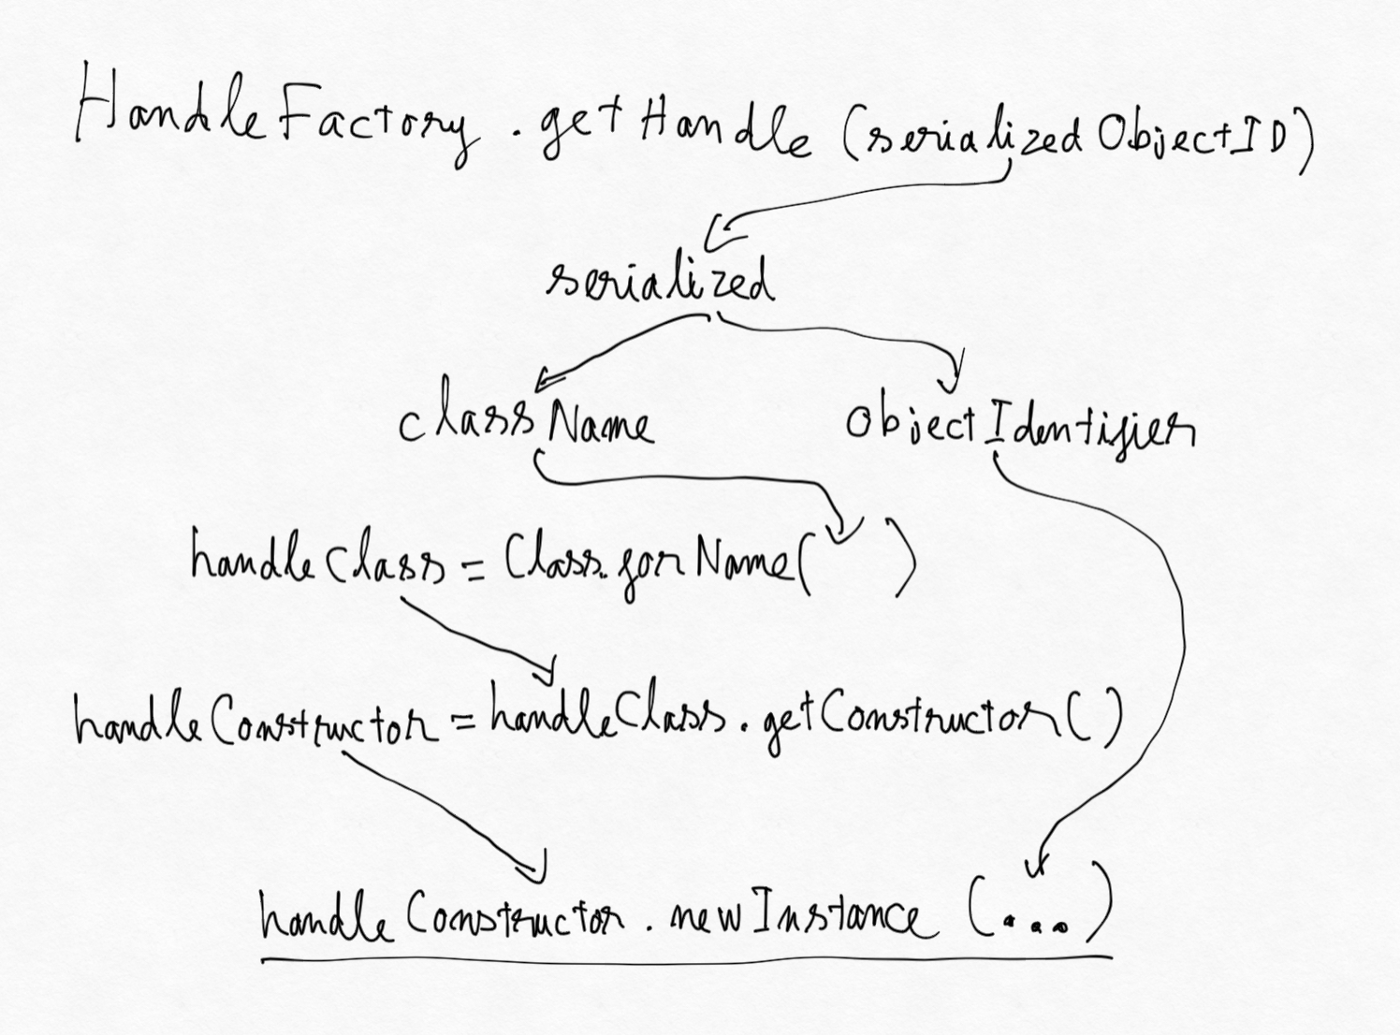 HandleFactory.getHandle(serializedObjectID)
serialized
className objectIdentifier
handleClass = Class.forName( )
handleConstructor = handleClass.getConstructor()
handleConstructor.newInstance(...)